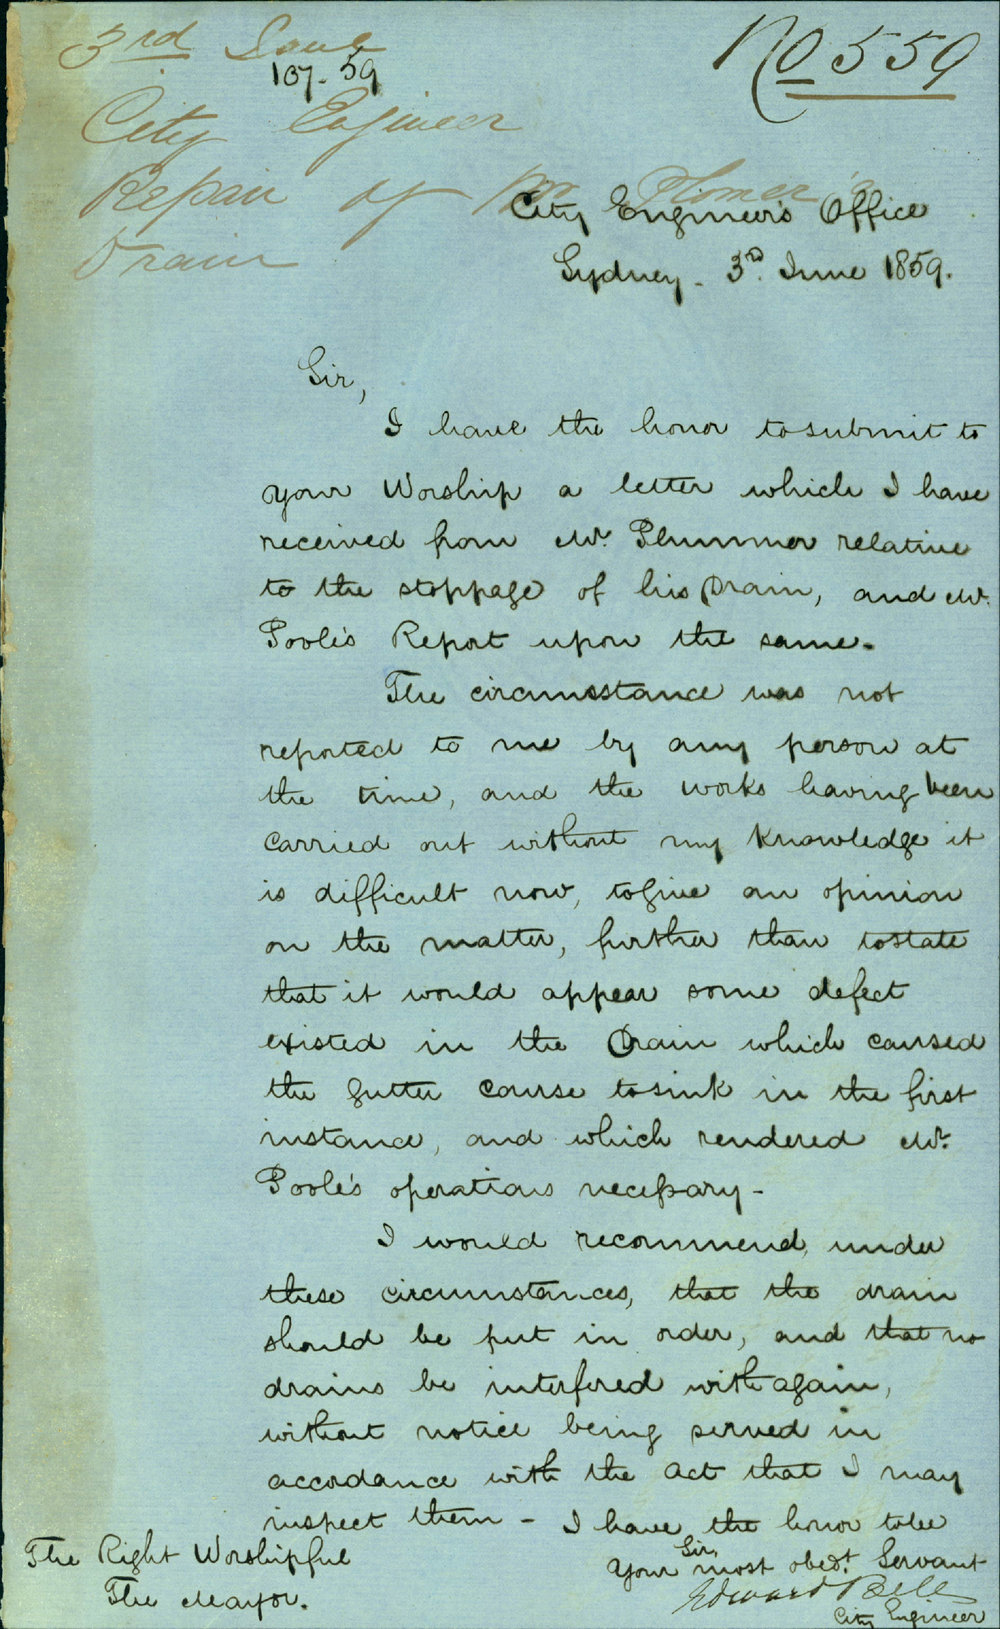 3rd June
107-59
No 559
City Engineer
Repair of Mr Plomer's
Drain
City Engineer's Office
Sydney - 3rd. June 1859.
Sir,
I have the honor to submit to
your Worship a letter which I have
received from Mr. Plummer relative
to the stoppage of his Drain, and Mr.
Poole's Report upon the same -
The circumsstance was not
reported to me by any person at
the time, and the works having been
carried out without my knowledge it
is difficult now, to give an opinion
on the matter, further than to state
that it would appear some defect
existed in the Drain which caused
the gutter course to sink in the first
instance, and which rendered Mr.
Poole's operations necessary -
I would recommend, under
these circumstances, that the drain
should be put in order, and that no
drains be interfered with again,
without notice being served in
accordance with the Act that I may
inspect them - I have the honor to be
Sir,
Your most obedt. Servant
Edward Bell
City Engineer
The Right Worshipful
The Mayor.